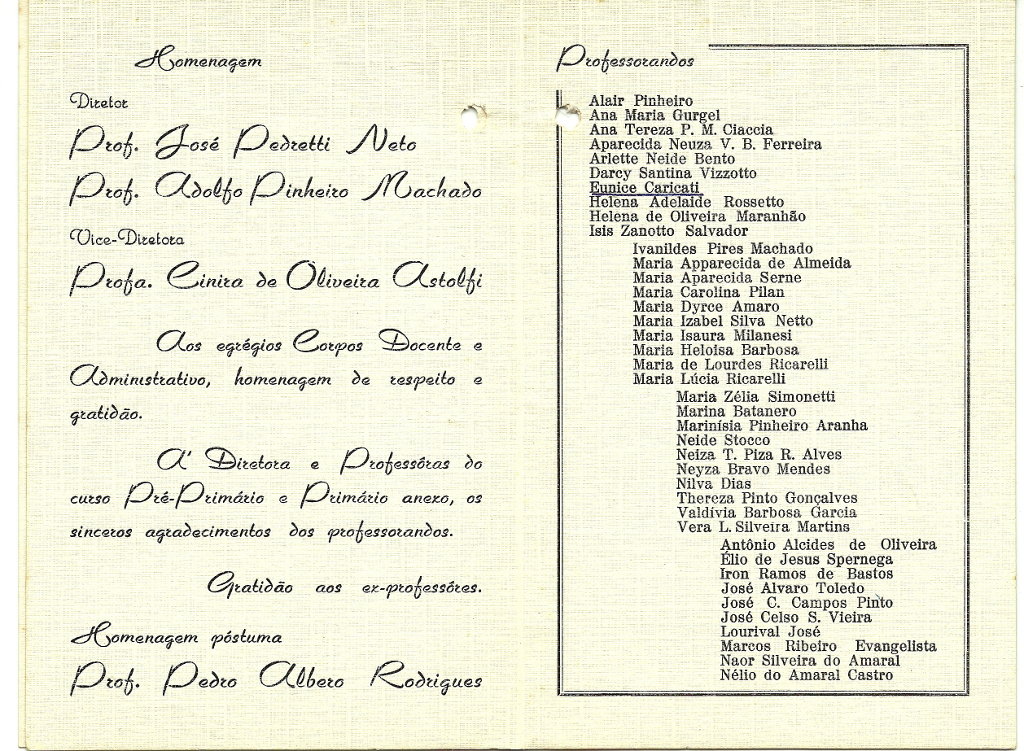 Homenagem
Diretor
Prof. José Pedretti Neto
Prof. Adolfo Pinheiro Machado
Vice-Diretora
Profa. Cinira de Oliveira Astolfi
Aos egrégios Corpos Docente e
Administrativo, homenagem de respeito e
gratidão.
A' Diretora e Professôras do
curso Pré-Primário e Primário anexo, os
sinceros agradecimentos dos professorandos.
Gratidão aos ex-professôres.
Homenagem póstuma
Prof. Pedro Albero Rodrigues
Professorandos
Alair Pinheiro
Ana Maria Gurgel
Ana Tereza P. M. Ciaccia
Aparecida Neuza V. B. Ferreira
Arlette Neide Bento
Darcy Santina Vizzotto
Eunice Caricati
Helena Adelaide Rossetto
Helena de Oliveira Maranhão
Isis Zanotto Salvador
Ivanildes Pires Machado
Maria Apparecida de Almeida
Maria Aparecida Serne
Maria Carolina Pilan
Maria Dyrce Amaro
Maria Izabel Silva Netto
Maria Isaura Milanesi
Maria Heloisa Barbosa
Maria de Lourdes Ricarelli
Maria Lúcia Ricarelli
Maria Zélia Simonetti
Marina Batanero
Marinísia Pinheiro Aranha
Neide Stocco
Neiza T. Piza R. Alves
Neyza Bravo Mendes
Nilva Dias
Thereza Pinto Gonçalves
Valdívia Barbosa Garcia
Vera L. Silveira Martins
Antônio Alcides de Oliveira
Élio de Jesus Spernega
Iron Ramos de Bastos
José Alvaro Toledo
José C. Campos Pinto
José Celso S. Vieira
Lourival José
Marcos Ribeiro Evangelista
Naor Silveira do Amaral
Nélio do Amaral Castro